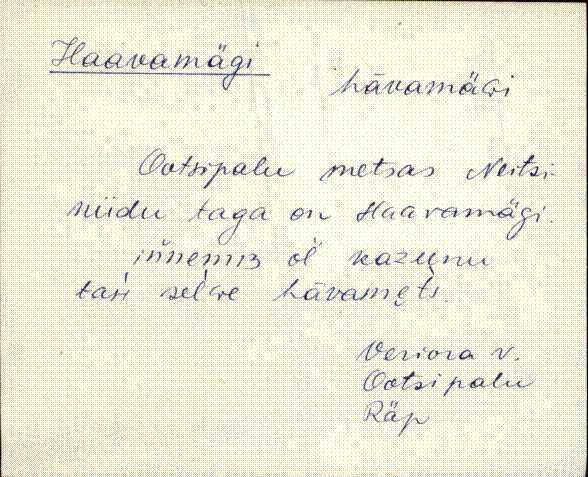 Haavamägi
hāvamäGi
Ootsipalu metsas Neitsi-
niidu taga on Haavamägi.
innemb öĺ kazunu
hāvamets.
Veriora v.
Ootsipalu
Räp